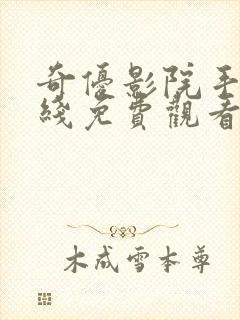 奇優影院手
綫免費觀看
木成雪本尊